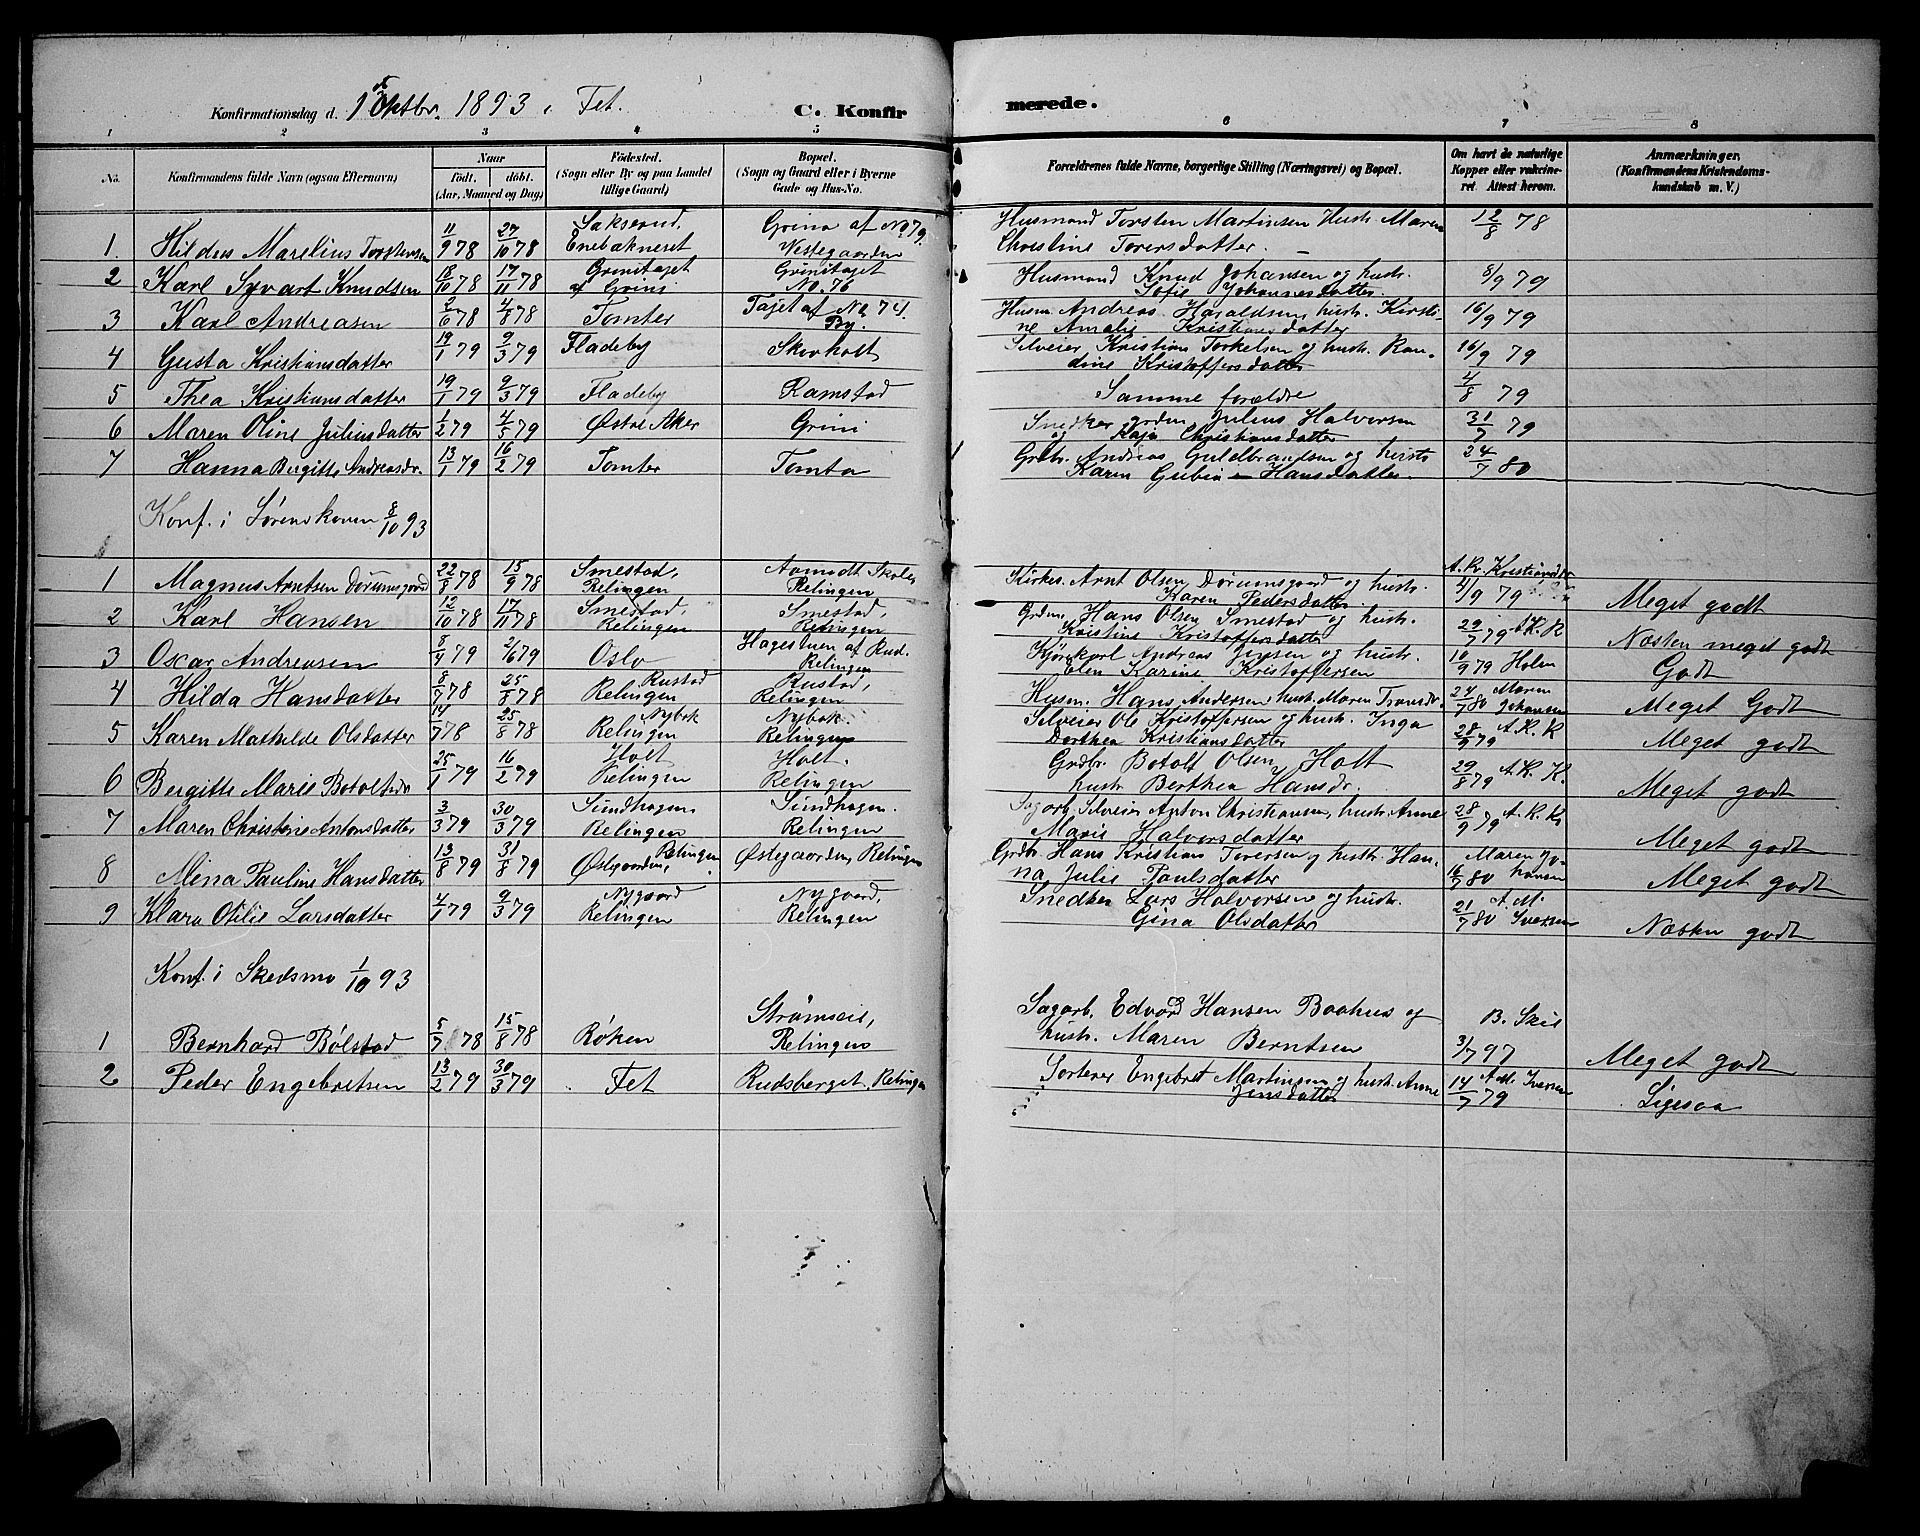 Konfirmationsdag d. 1ste Oktbr. 1893 i Fet. C. Konfirmerede.
1 2 3 4 5 6 7 8
No. Konfirmandens fulde Navn (ogsaa Efternavn) Naar Født. døbt. (Aar, Maaned og Dag) Fødested. (Sogn eller By og paa Landet tillige Gaard) Bopæl. (Sogn og Gaard eller i Byerne Gade og Hus-No. Forældrenes fulde Navne, borgerlige Stilling (Næringsvei) og Bopæl. Om havt de naturlige Kopper eller vaccineret. Attest herom. Anmærkninger. (Konfirmandens Kristendomskundskab m. V.)
1. Marelius Torstensen 11/9 78 27/10 78 Enebakneret Grina af No. 79. Vestegaarden Husmand Torsten Martinsen Hustr. Maren Christine Torersdatter. 12/8 78
2 Karl Syvart Knudsen 18/10 78 17/11 78 Grinitajet af Grini Grinitajet No. 76 Husmand Knud Johansen og hustr. Sofie Johannesdatter. 8/9 79
3 Karl Andreasen 2/6 78 4/8 78 Tomter Tajet af No 74. By. Husm. Andreas Haraldsen hustr. Kirstine Amalie Kristiansdatter 16/9 79
4 Gusta Kristiansdatter 19/1 79 9/3 79 Fladeby Skovholt Selveier Kristian Torkelsen og hustr. Randine Kristoffersdatter 16/9 79
5 Thea Kristiansdatter 19/1 79 9/3 79 Fladeby Ramstad Samme forældre 4/8 79
6 Maren Oline Juliusdatter 1/2 79 4/5 79 Østre Aker Grini Snedker Julius Halvorsen og Kaja Christiansdatter 31/7 79
7 Hanna Bergitte Andreasdr. 13/1 79 16/2 79 Tomter Tomta Grdbr. Andreas Guldbrandsen og hustr Karen Gubia Hansdatter. 24/7 80
Konf. i Sørenskoven 8/10 93
1 Magnus Arntsen Dørumsgaard 22/8 78 15/9 78 Smestad, Relingen Aamodt Skole Relingen Kirkes. Arnt Olsen Dørumsgaard og hustr. Karen Pedersdatter. A. K. Kristiansdr 4/9 79 Meget godt
2 Karl Hansen 12/10 78 17/11 78 Smestad, Relingen Smestad, Relingen Grdm. Hans Olsen Smestad og hustr. Kristine Kristoffersdatter 29/7 79 A. K. K Næsten meget godt
3 Oscar Andreasen 8/4 79 2/6 79 Oslo Hagestuen af Rud. Relingen Kjørekarl Andreas Jensen og hustr. Elen Karine Kristoffersen 10/9 79 Holm Godt
4 Hilda Hansdatter 8/7 78 25/8 78 Rustad Relingen Rustad, Relingen Husm. Hans Andersen, hustr. Maren 24/7 80 Maren Johansen Meget Godt
5 Karen Mathilde Olsdatter 14/7 78 25/8 78 Nybak Relingen Nybak. Relingen Selveier Ole Kristoffersen og hustr. Inga Dorthea Kristiansdatter 28/9 79 A. K. K Meget godt
6 Bergitte Marie Botolfsdr 25/1 79 16/2 79 Holt Relingen Holt. Relingen Grdbr. Botolf Olsen Holt hustr. Berthea Hansdr. 29/8 79 A. K. K. Meget godt
7 Maren Christine Antonsdatter 3/3 79 30/3 79 Sundhagen, Relingen Sundhagen. Relingen Sagarb. Selveier Anton Christiansen, hustr. Anne Marie Halvorsdatter 28/9 79 A. K. K. Meget godt
8 Mina Pauline Hansdatter 13/8 79 31/8 79 Østgaarden, Relingen Østegaarden, Relingen Grdbr. Hans Kristian Toversen og hustr. Hanna Julie Paulsdatter 16/7 80 Maren Johansen Meget godt
9 Klara Otilie Larsdatter 4/1 79 9/3 79 Nygaard Relingen Nygaard, Relingen Snedker Lars Halvorsen og hustr. Gina Olsdatter 21/7 80 A. M. Iversen Næsten godt
Konf. i Skedsmo 1/10 93
1 Bernhard Bølstad 5/7 78 15/8 78 Røken Strømseie, Relingen Sagarb. Edvard Hansen Baahus og hustr. Maren Berntsen B. Skis 3/7 97 Meget godt
2 Peder Engebretsen 13/2 79 30/3 79 Fet Rudsberget, Relingen Sorterer Engebret Martinsen og hustr. Anne Jensdatter 14/7 79 A. M. Iversen Ligesaa